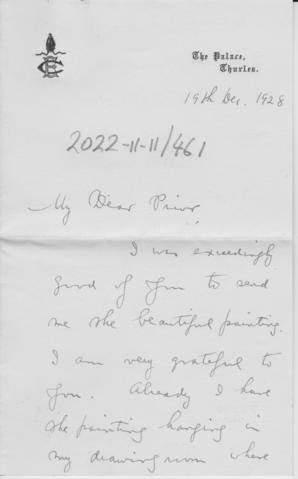 The Palace,
Thurles.
19th Dec. 1928
2022-11-11/461
My Dear Prior,
I was exceedingly
good of you to send
me the beautiful painting.
I am very grateful to
you. Already I have
the painting hanging in
my drawingroom where